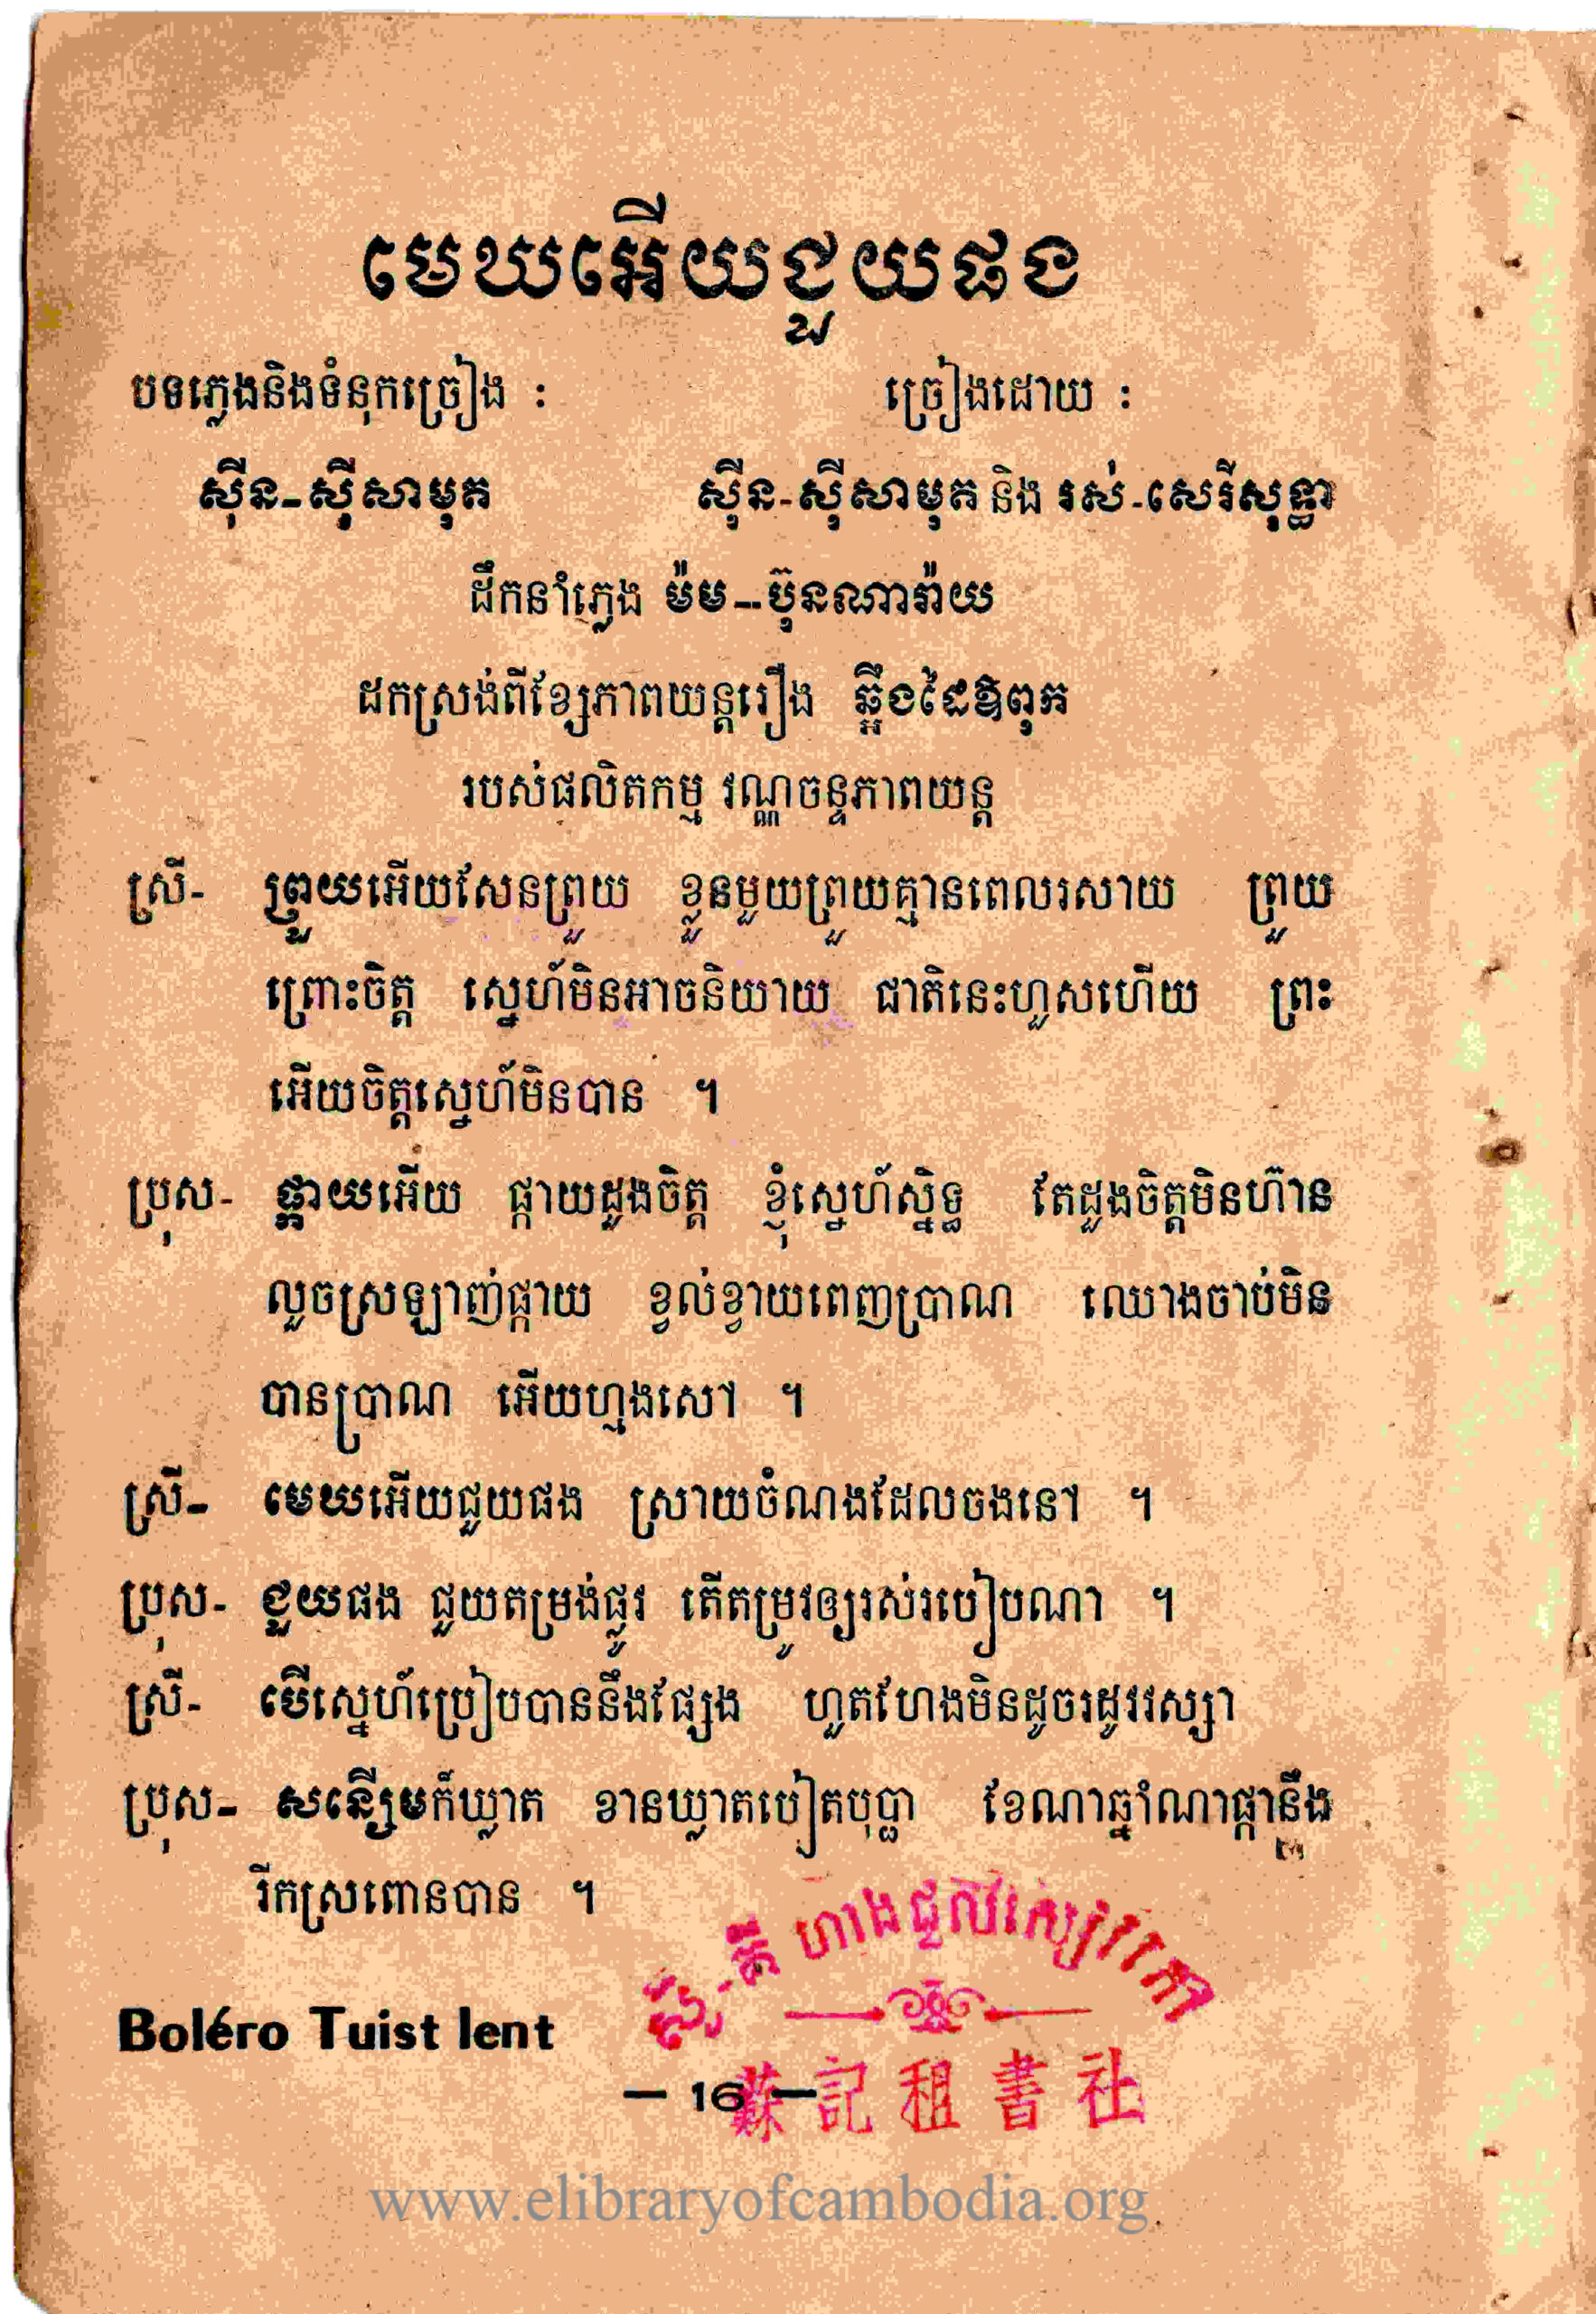 មេឃអើយជួយផង
បទភ្លេងនិងទំនុកច្រៀង :	ច្រៀងដោយ :
ស៊ីន-ស៊ីសាមុត	ស៊ីន-ស៊ីសាមុត និង រស់-សេរីសុទ្ធា
ដឹកនាំភ្លេង ម៉ម--ប៊ុនណារ៉ាយ
ដកស្រង់ពីខ្សែភាពយន្តរឿង ឆ្អឹងដៃឱពុក
របស់ផលិតកម្ម វណ្ណចន្ទភាពយន្ត
ស្រី- ព្រួយអើយសែនព្រួយ ខ្លួនមួយព្រួយគ្មានពេលរសាយ ព្រួយ
ព្រោះចិត្ត ស្នេហ៍មិនអាចនិយាយ ជាតិនេះហួសហើយ ព្រះ
អើយចិត្តស្នេហ៍មិនបាន ។
ប្រុស- ផ្កាយអើយ ផ្កាយដួងចិត្ត ខ្ញុំស្នេហ៍ស្និទ្ធ តែដួងចិត្តមិនហ៊ាន
លួចស្រឡាញ់ផ្កាយ ខ្វល់ខ្វាយពេញប្រាណ ឈោងចាប់មិន
បានប្រាណ អើយហ្មងសៅ ។
ស្រី- មេឃអើយជួយផង ស្រាយចំណងដែលចងនៅ ។
ប្រុស- ជួយផង ជួយតម្រង់ផ្លូវ តើតម្រូវឲ្យរស់របៀបណា ។
ស្រី- បើស្នេហ៍ប្រៀបបាននឹងផ្សែង ហួតហែងមិនដូចរដូវវស្សា
ប្រុស- សន្សើមក៏ឃ្លាត ខានឃ្លាតបៀតបុប្ផា ខែណាឆ្នាំណាផ្កានឹង
រីកស្រពោនបាន ។
Boléro Tuist lent
ហាងជួលសៀវភៅ
— 16 —
蘇記租書社
www.elibraryofcambodia.org